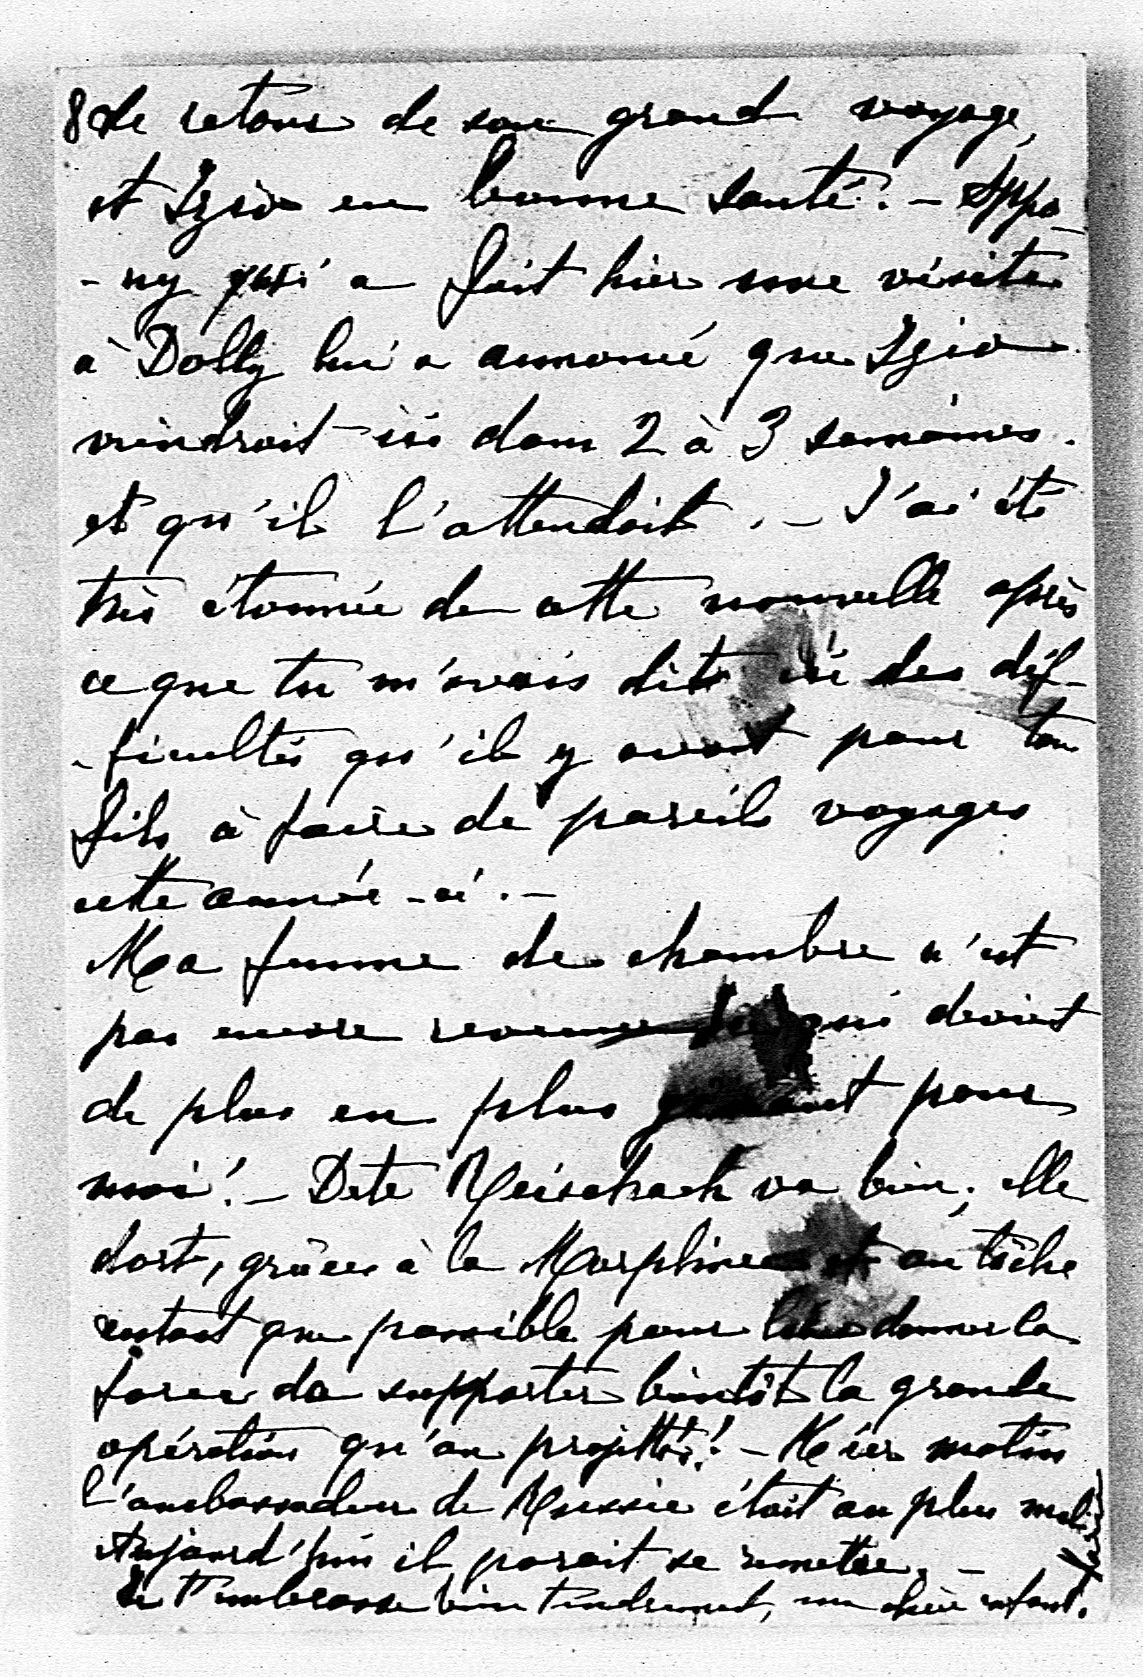 8 de retour de son grand voyage,
et Izio en bonne santé. – Appo-
- ny qui a fait hier une visite
à Dolly lui a annoncé que Izio
viendrait ici dans 2 à 3 semaines.
et qu'il l'attendait. – J'ai été
très étonnée de cette nouvelle après
ce que tu m'avais dit des dif-
- ficultés qu'il y avait pour ton
fils à faire de pareils voyages
cette année-ci. –
Ma femme de chambre n'est
pas encore revenue qui devient
de plus en plus gênant pour
moi! – Dete Reischach va bien, elle
dort, grâce à la Morphine et on tâche
autant que possible pour donner la
force de supporter bientôt la grande
opération qu'on projette! – Hier matin
l'ambassadeur de Russie était au plus mal,
Aujourd'hui il parait se remettre. –
Je t'embrasse bien tendrement, mon chère enfant.